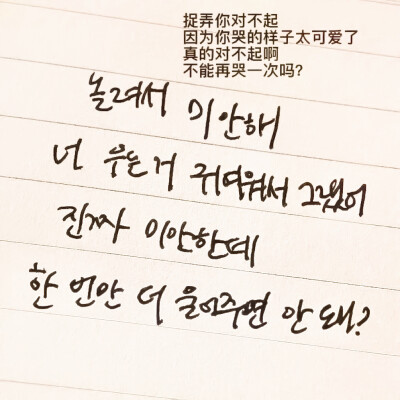 捉弄你对不起
因为你哭的样子太可爱了
真的对不起啊
不能再哭一次吗?
놀려서 미안해
너 우는거 귀여워서 그랬어
진짜 미안한데
한 번만 더 울어주면 안돼?